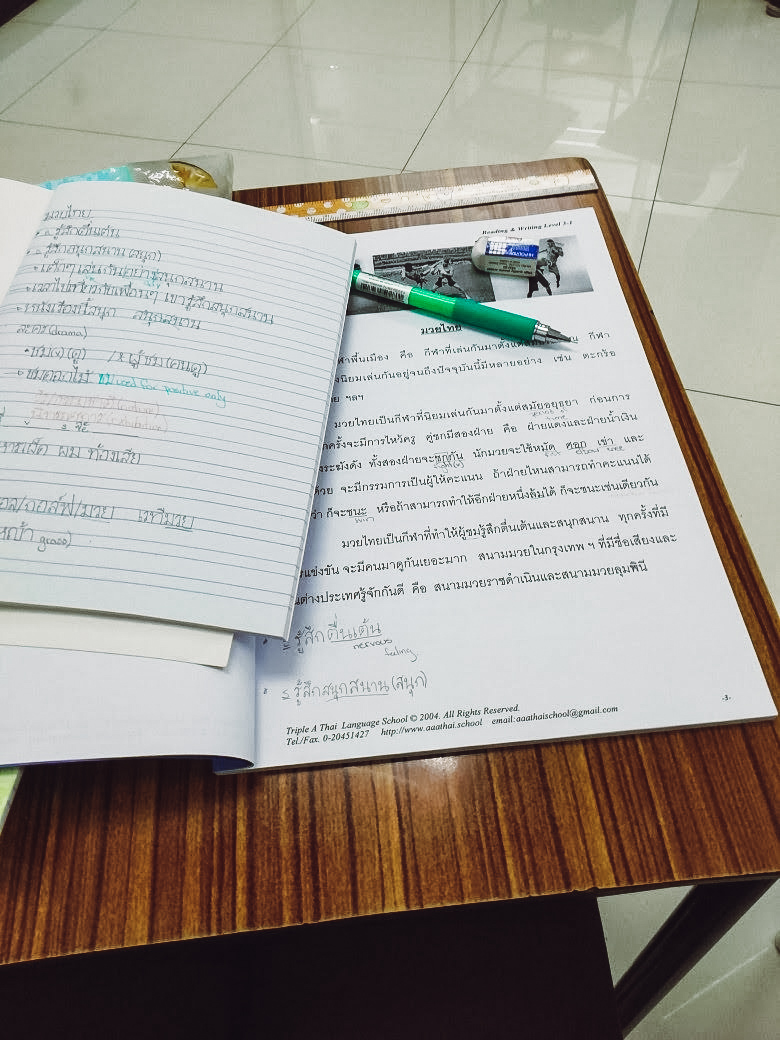 มวยไทย
• ~ รู้สึกตื่นเต้น
• ~ รู้สึกสนุกสนาน (สนุก)
• เด็กๆ เล่นกันอย่างสนุกสนาน
• เวลาไป เพื่อนๆ เขารู้สึกสนุกสนาน
• หนังเรื่องนี้สนุก สนุกสนาน
ละคร (drama)
• ชม(v) (ดู) / ผู้ชม (คนดู)
• ชมดอกไม้ ชม used for positive only
ผม ท้องเสีย
กอล์ฟ/มวย เวทีมวย
หญ้า grass)
Reading & Writing Level 3-1
มวยไทย
กีฬาพื้นเมือง คือ กีฬาที่เล่นกันมาตั้งแต่ กีฬา
นิยมเล่นกันอยู่จนถึงปัจจุบันนี้มีหลายอย่าง เช่น ตะกร้อ
ฯลฯ
มวยไทยเป็นกีฬาที่นิยมเล่นกันมาตั้งแต่สมัยอยุธยา ก่อนการ
time
ครั้งจะมีการไหว้ครู คู่ชกมีสองฝ่าย คือ ฝ่ายแดงและฝ่ายน้ำเงิน
ระฆังดัง ทั้งสองฝ่ายจะชกกัน นักมวยจะใช้หมัด ศอก เข่า และ
fight(v) fist elbow knee
ด้วย จะมีกรรมการเป็นผู้ให้คะแนน ถ้าฝ่ายไหนสามารถทำคะแนนได้
ว่า ก็จะชนะ หรือถ้าสามารถทำให้อีกฝ่ายหนึ่งล้มได้ ก็จะชนะเช่นเดียวกัน
win
มวยไทยเป็นกีฬาที่ทำให้ผู้ชมรู้สึกตื่นเต้นและสนุกสนาน ทุกครั้งที่มี
แข่งขัน จะมีคนมาดูกันเยอะมาก สนามมวยในกรุงเทพ ฯ ที่มีชื่อเสียงและ
ต่างประเทศรู้จักกันดี คือ สนามมวยราชดำเนินและสนามมวยลุมพินี
~ รู้สึกตื่นเต้น
nervous
feeling
~ รู้สึกสนุกสนาน (สนุก)
Triple A Thai Language School © 2004. All Rights Reserved.
-3-
Tel./Fax. 0-20451427 http://www.aaathai.school email:aaathaischool@gmail.com